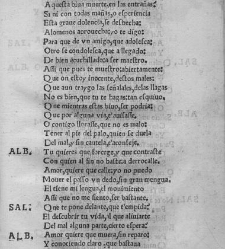 A questa biua muerte, en las entrañas;
Si aſi con todas mañas, o eſperiencia
Eſta graue dolencia, ſe deshecha;
Alomenos aprouecha, o te digo:
Para que de vn amigo, que adoleſca;
Otro ſe condoleſca, que a llegado;
De bien acuchillado a ſer maeſtro.
Aſsi que pues te mueſtro abiertamente:
Que no eſtoy inocente, deſtos males:
Que aun traygo las ſeñales, de las llagas
No es bien, que tu te hagas tan eſquiuo,
Que mientras eſtas biuo, ſer podria;
Que por alguna via, te auiſaſſe,
O contigo lloraſſe, que no es malo:
Tener al pie del palo, quien ſe duela
Del mal, y ſin cautela, t'aconſeje.
ALB. Tu quieres que forceje, y que contraſte
Con quien al fin no baſta a derrocalle.
Amor quiere que calle, yo no puedo
Mouer el paſſo vn dedo, ſin gran mengua.
El tiene mi lengua, el mouimiento
Aſsi que no me ſiento, ſer baſtante.
SAL. Que te pone delante, que t'empida;
El deſcubrir tu vida, al que aliuiarte
Del mal alguna parte, cierto eſpera:
ALB. Amor quiere que muera, ſin reparo:
Y conociendo claro, que baſtaua